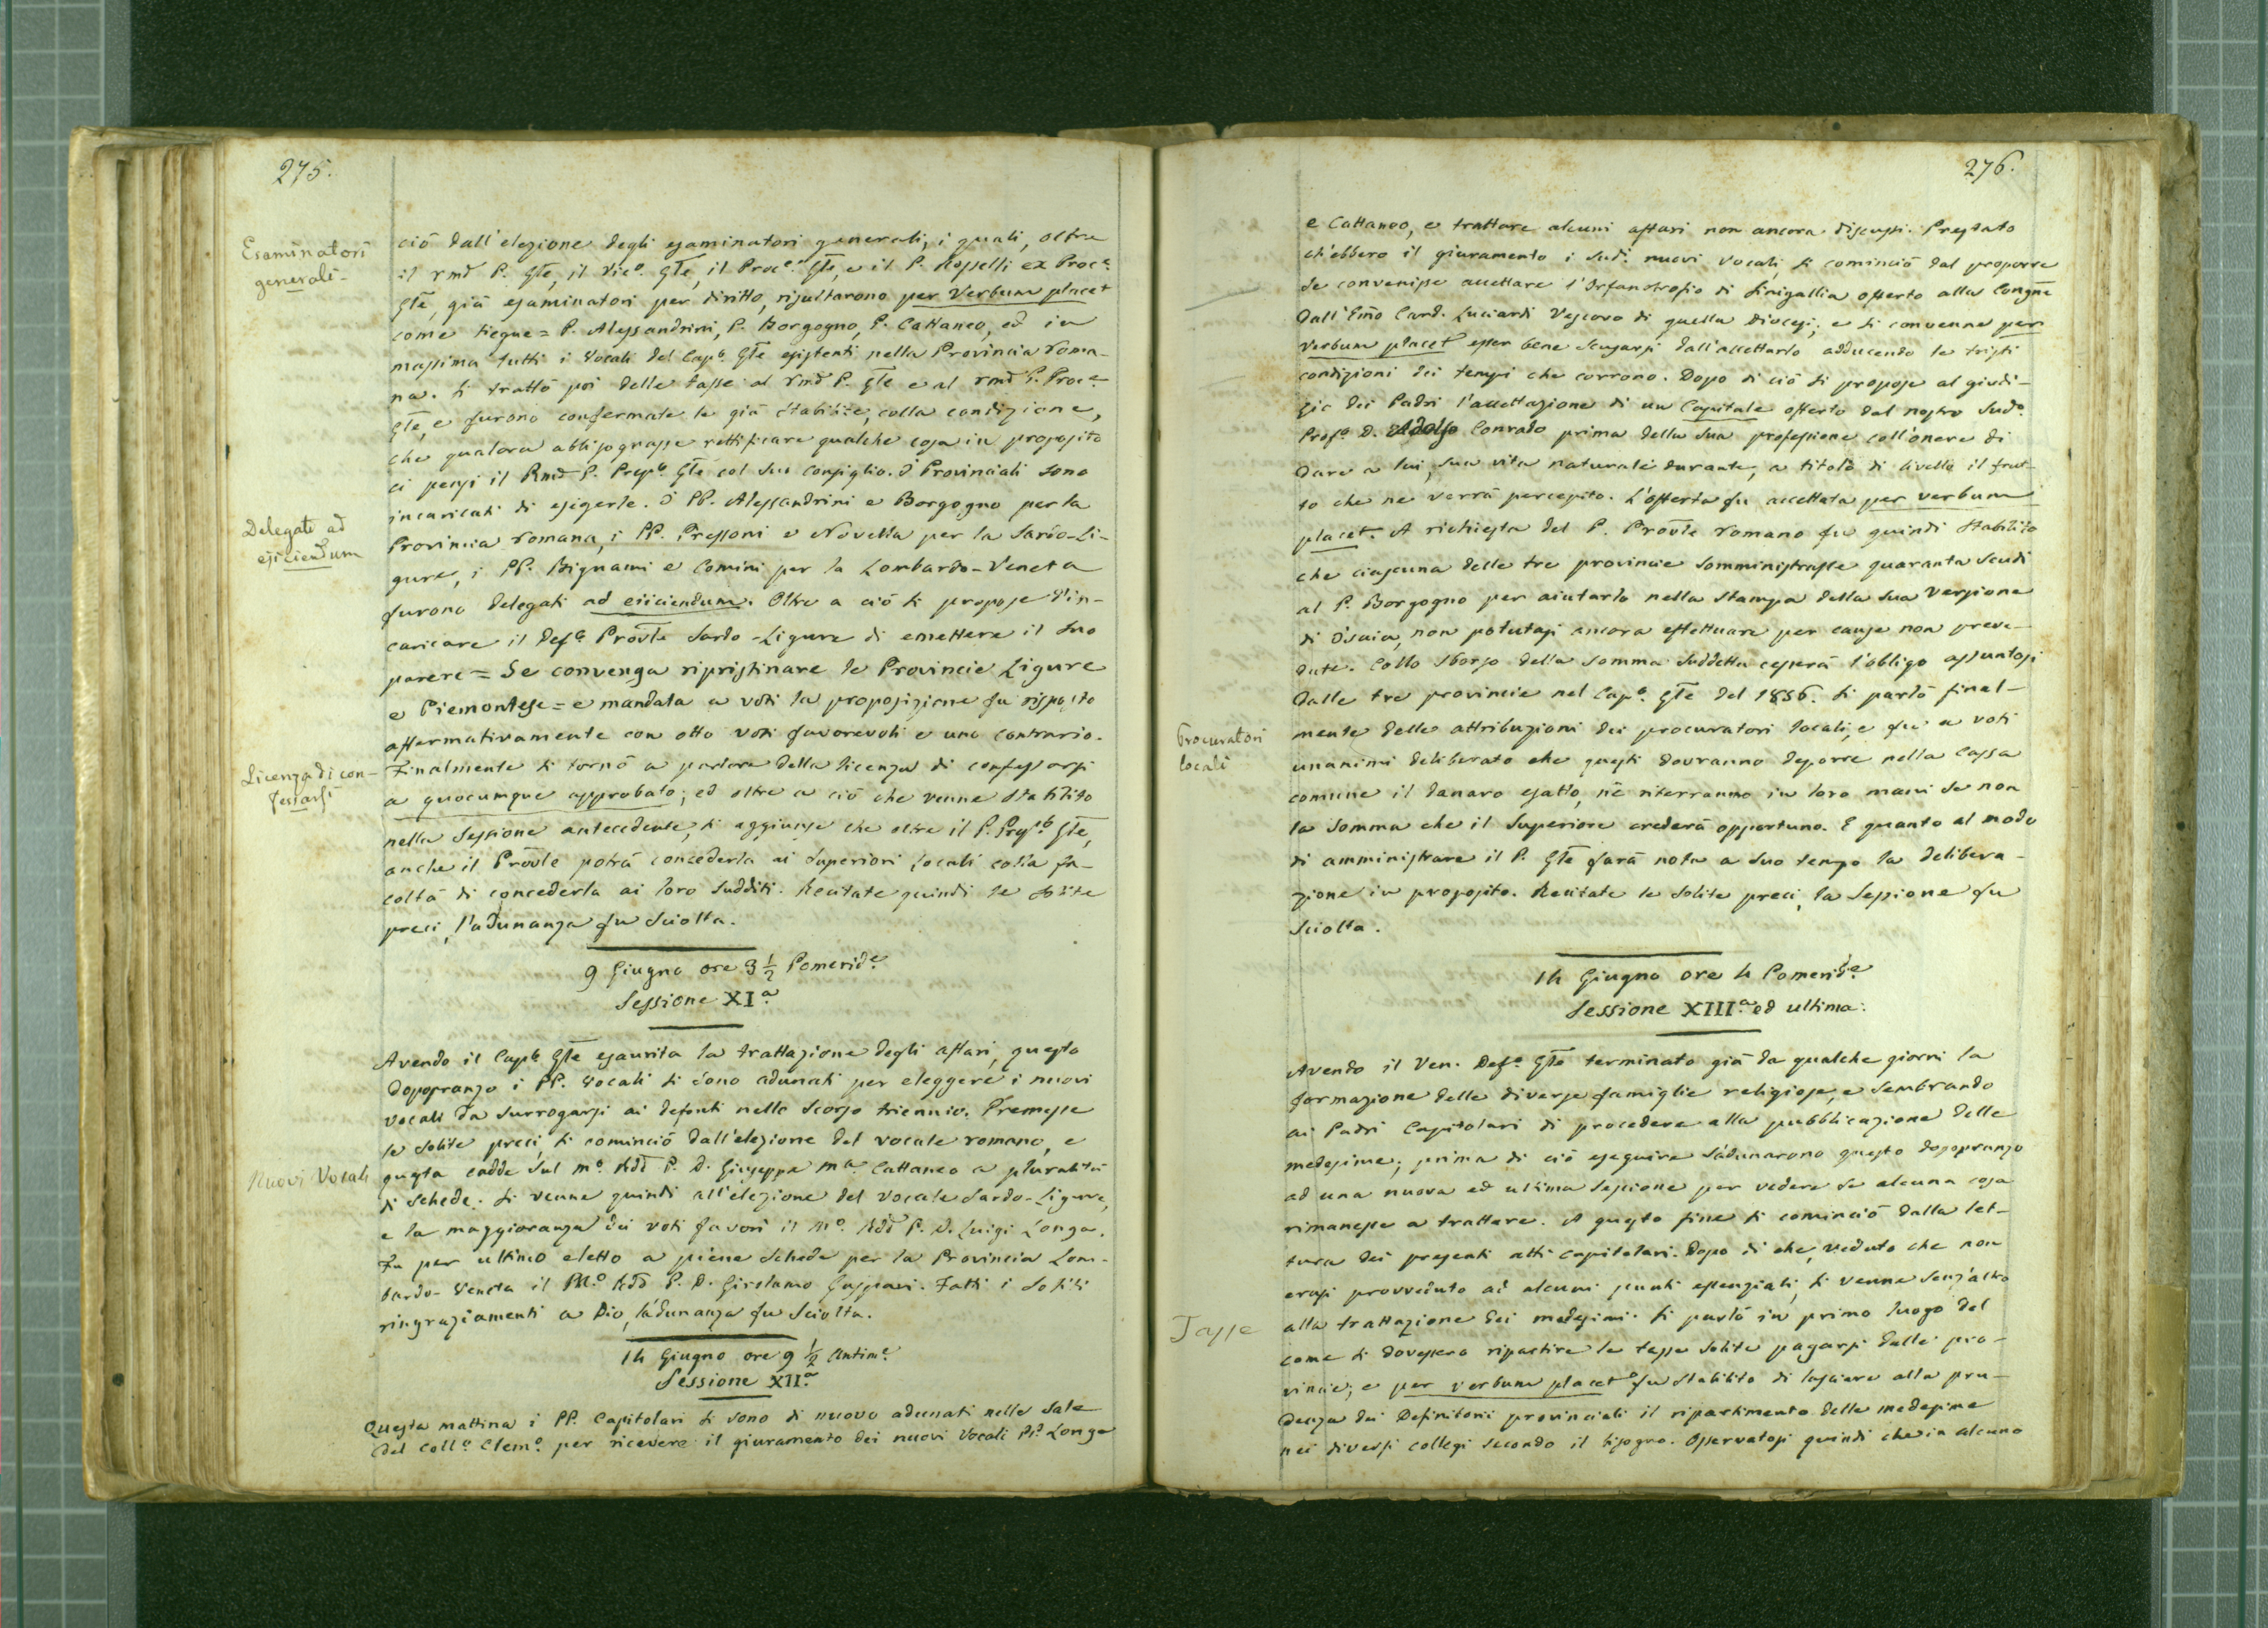 275.
Esaminatori
generali-
ciò dall'elezione degli esaminatori generali, i quali, oltre
il rmõ P. Gle, il Vico. Gle, il Proce. Gle, e il P. Rosselli ex Proce.
Gle, già esaminatori per diritto, risultarono per verbum placet
come segue = P. Alessandrini, P. Borgogno, P. Cattaneo, ed in
massima tutti i vocali del Capo. Gle esistenti nella Provincia roma-
na. Si trattò poi delle tasse al rmõ P. Gle e al rmõ P. Proce.
Gle, e furono confermate le già stabilite, colla condizione,
che qualora abbisognasse rettificare qualche cosa in proposito
ci pensi il Rmõ P. Prepo. Gle col suo consiglio. I Provinciali sono
incaricati di esigerle. I PP. Alessandrini e Borgogno per la
Delegati ad
ejiciendum
Provincia romana, i PP. Pressoni e Novella per la Sardo-Li-
gure, i PP. Bignami e Comini per la Lombardo-Veneta
furono delegati ad eiiciendum. Oltre a ciò si propose d'in-
caricare il Defo. Provle Sardo-Ligure di emettere il suo
parere = Se convenga ripristinare le Provincie Ligure
e Piemontese = e mandata a voti la proposizione fu risposto
affermativamente con otto voti favorevoli e uno contrario.
Licenza di con-
fessarsi
Finalmente si tornò a parlare della licenza di confessarsi
a quocumque approbato; ed oltre a ciò che venne stabilito
nella Sessione antecedente, si aggiunse che oltre il P. Prepo. Gle,
anche il Provle potrà concederla ai Superiori locali colla fa-
coltà di concederla ai loro sudditi. Recitate quindi le solite
preci, l'adunanza fu sciolta.
9 Giugno ore 3 1/2 Pomeride.
Sessione XIa.
Avendo il Capo. Gle esaurita la trattazione degli affari, questo
dopopranzo i PP. vocali si sono adunati per eleggere i nuovi
vocali da surrogarsi ai defonti nello scorso triennio. Premesse
le solite preci, si cominciò dall'elezione del vocale romano, e
Nuovi Vocali
questa cadde sul mo. Rdõ P. D. Giuseppe Ma. Cattaneo a pluralità
di schede. Si venne quindi all'elezione del vocale Sardo-Ligure,
e la maggioranza dei voti favorì il mo. Rdõ P. D. Luigi Longa.
Fu per ultimo eletto a piene schede per la Provincia Lom-
bardo-Veneta il Mo. Rdõ P. D. Girolamo Gaspari. Fatti i soliti
ringraziamenti a Dio, l'adunanza fu sciolta.
14 Giugno ore 9 1/2 Antime.
Sessione XIIa.
Questa mattina i PP. Capitolari si sono di nuovo adunati nella Sala
del Collo. Clemo. per ricevere il giuramento dei nuovi Vocali PP. Longa
276.
e Cattaneo, e trattare alcuni affari non ancora discussi. Prestato
ch'ebbero il giuramento i sudi. nuovi vocali, si cominciò dal proporre
se convenisse accettare l'Orfanotrofio di Sinigallia offerto alla Congne
dall'Emo Card. Luciardi Vescovo di quella Diocesi; e si convenne per
verbum placet esser bene scusarsi dall'accettarlo adducendo le tristi
condizioni dei tempi che corrono. Dopo di ciò si propose al giudi-
zio dei Padri l'accettazione di un Capitale offerto dal nostro sudo.
Profo. D. Adolfo Conrado prima della sua professione coll'onere di
dare a lui, sua vita naturale durante, a titolo di livello il frut-
to che ne verrà percepito. L'offerta fu accettata per verbum
placet. A richiesta del P. Provle romano fu quindi stabilito
che ciascuna delle tre provincie somministrasse quaranta scudi
al P. Borgogno per aiutarlo nella stampa della sua versione
di Isaia, non potutasi ancora effettuare per cause non preve-
dute. Collo sborso della somma suddetta cesserà l'obbligo assuntosi
dalle tre provincie nel Capo. Gle del 1856. Si parlò final-
Procuratori
locali
mente delle attribuzioni dei procuratori locali, e fu a voti
unanimi deliberato che questi dovranno deporre nella cassa
comune il danaro esatto, nè riterranno in loro mani se non
la somma che il Superiore crederà opportuno. E quanto al modo
di amministrare il P. Gle farà nota a suo tempo la delibera-
zione in proposito. Recitate le solite preci, la Sessione fu
sciolta.
14 Giugno ore 4 Pomeride.
Sessione XIIIa. ed ultima.
Avendo il Ven. Defo. Gle terminato già da qualche giorni la
formazione delle diverse famiglie religiose, e sembrando
ai Padri Capitolari di procedere alla pubblicazione delle
medesime; prima di ciò eseguire s'adunarono questo dopopranzo
ad una nuova ed ultima sessione per vedere se alcuna cosa
rimanesse a trattare. A questo fine si cominciò dalla let-
tura dei presenti atti capitolari. Dopo di che, veduto che non
erasi provveduto ad alcuni punti essenziali, si venne senz'altro
Tasse
alla trattazione dei medesimi. Si parlò in primo luogo del
come si dovessero ripartire le tasse solite pagarsi dalle pro-
vincie; e per verbum placet fu stabilito di lasciare alla pru-
denza dei Definitorii provinciali il ripartimento delle medesime
nei diversi collegi secondo il bisogno. Osservatosi quindi che in alcuno